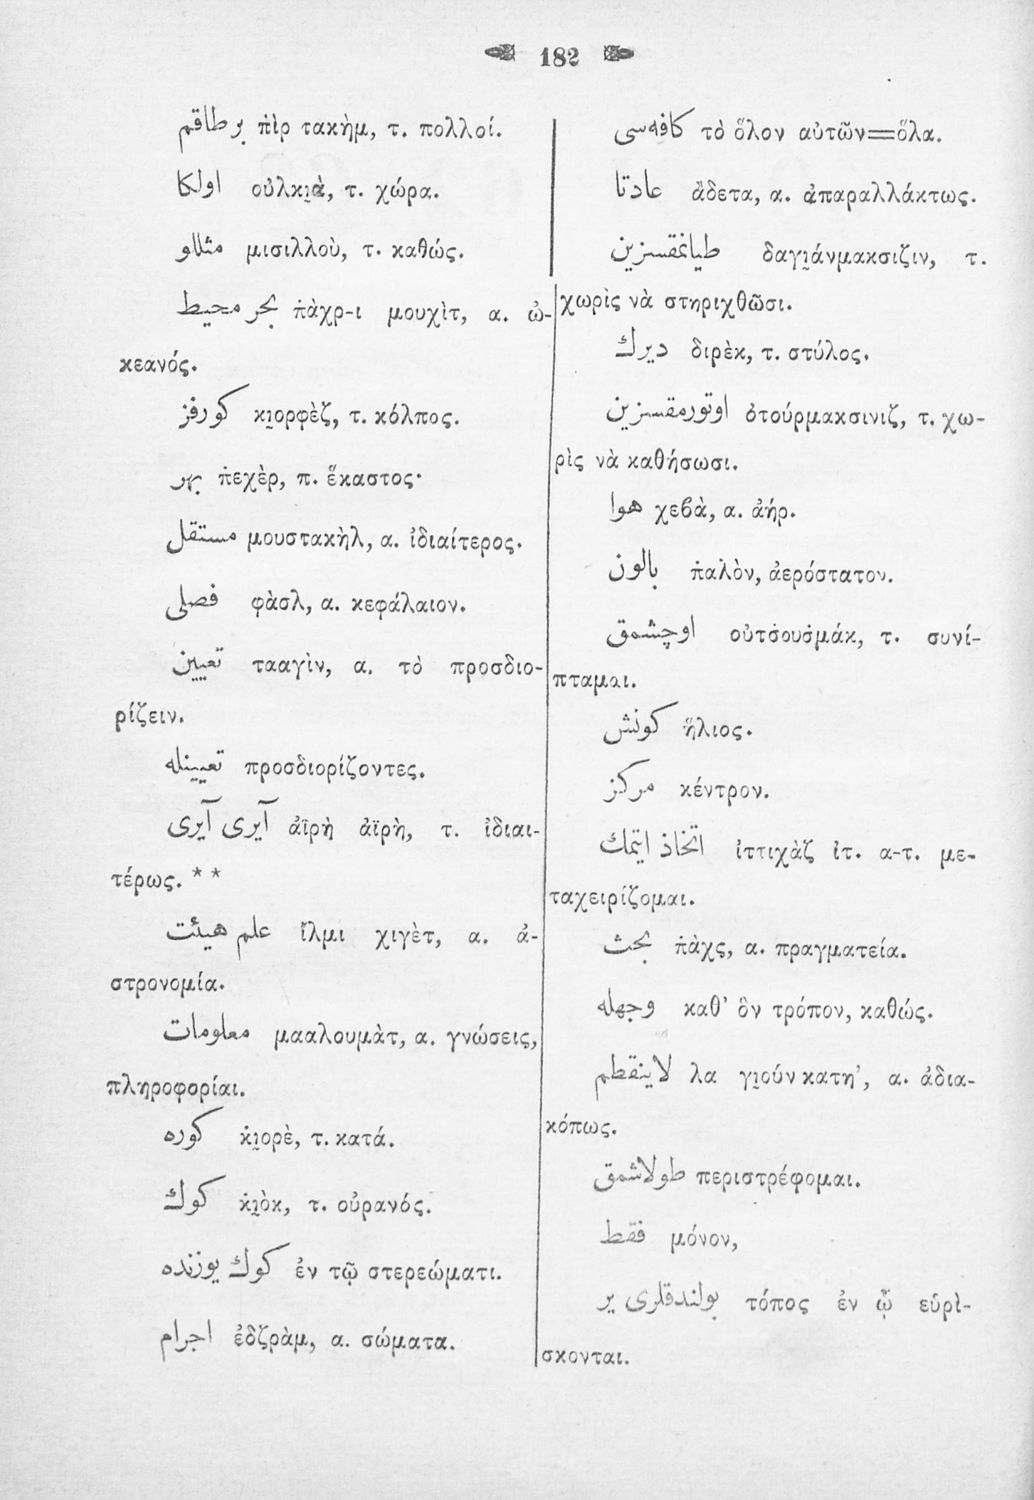 182
بر طاقم π̇ὶρ τακὴμ, τ. πολλοί.
اولكا οὐλκι̯ὰ, τ. χώρα.
مثللو μισιλλοὺ, τ. καθώς.
بحر محيط π̇ὰχρ-ι μουχὶτ, α. ὠ-
κεανός.
كورفز κι̯ορφὲζ, τ. κόλπος.
بهر π̇εχὲρ, π. ἕκαστος·
مستقل μουστακὴλ, α. ἰδιαίτερος.
فصلى φὰσλ, α. κεφάλαιον.
تعيين τααγὶν, α. τὸ προσδιο-
ρίζειν.
تعيينله προσδιορίζοντες.
آيرى آيرى ἀϊρὴ ἀϊρὴ, τ. ἰδιαι-
τέρως. * *
علم هيئت ἴλμι χιγὲτ, α. ἀ-
στρονομία.
معلومات μααλουμὰτ, α. γνώσεις,
πληροφορίαι.
كوره κ̇ι̯ορὲ, τ. κατά.
كوك κ̇ι̯ὸκ, τ. οὐρανός.
كوك يوزنده ἐν τῷ στερεώματι.
اجرام ἐδζρὰμ, α. σώματα.
كافه‌سى τὸ ὅλον αὐτῶν=ὅλα.
عادتا ἄδετα, α. ἀπαραλλάκτως.
طيانمقسزين δαγι̯άνμακσιζιν, τ.
χωρὶς νὰ στηριχθῶσι.
ديرك διρὲκ, τ. στύλος.
اوتورمقسزين ὀτούρμακσινιζ, τ. χω-
ρὶς νὰ καθήσωσι.
هوا χεβὰ, α. ἀήρ.
بالون π̇αλὸν, ἀερόστατον.
اوچشمق οὐτσ̇ουσ̇μάκ, τ. συνί-
πταμαι.
كونش ἥλιος.
مركز κέντρον.
اتخاذ ايتمك ἰττιχὰζ ἰτ. α-τ. με-
ταχειρίζομαι.
بحث π̇ὰχς, α. πραγματεία.
وجهله καθ’ ὃν τρόπον, καθώς.
لاينقطع λα γι̯ούν κατη’, α. ἀδια-
κόπως.
طولاشمق περιστρέφομαι.
فقط μόνον,
بولندقلرى ير τόπος ἐν ᾧ εὑρὶ-
σκονται.